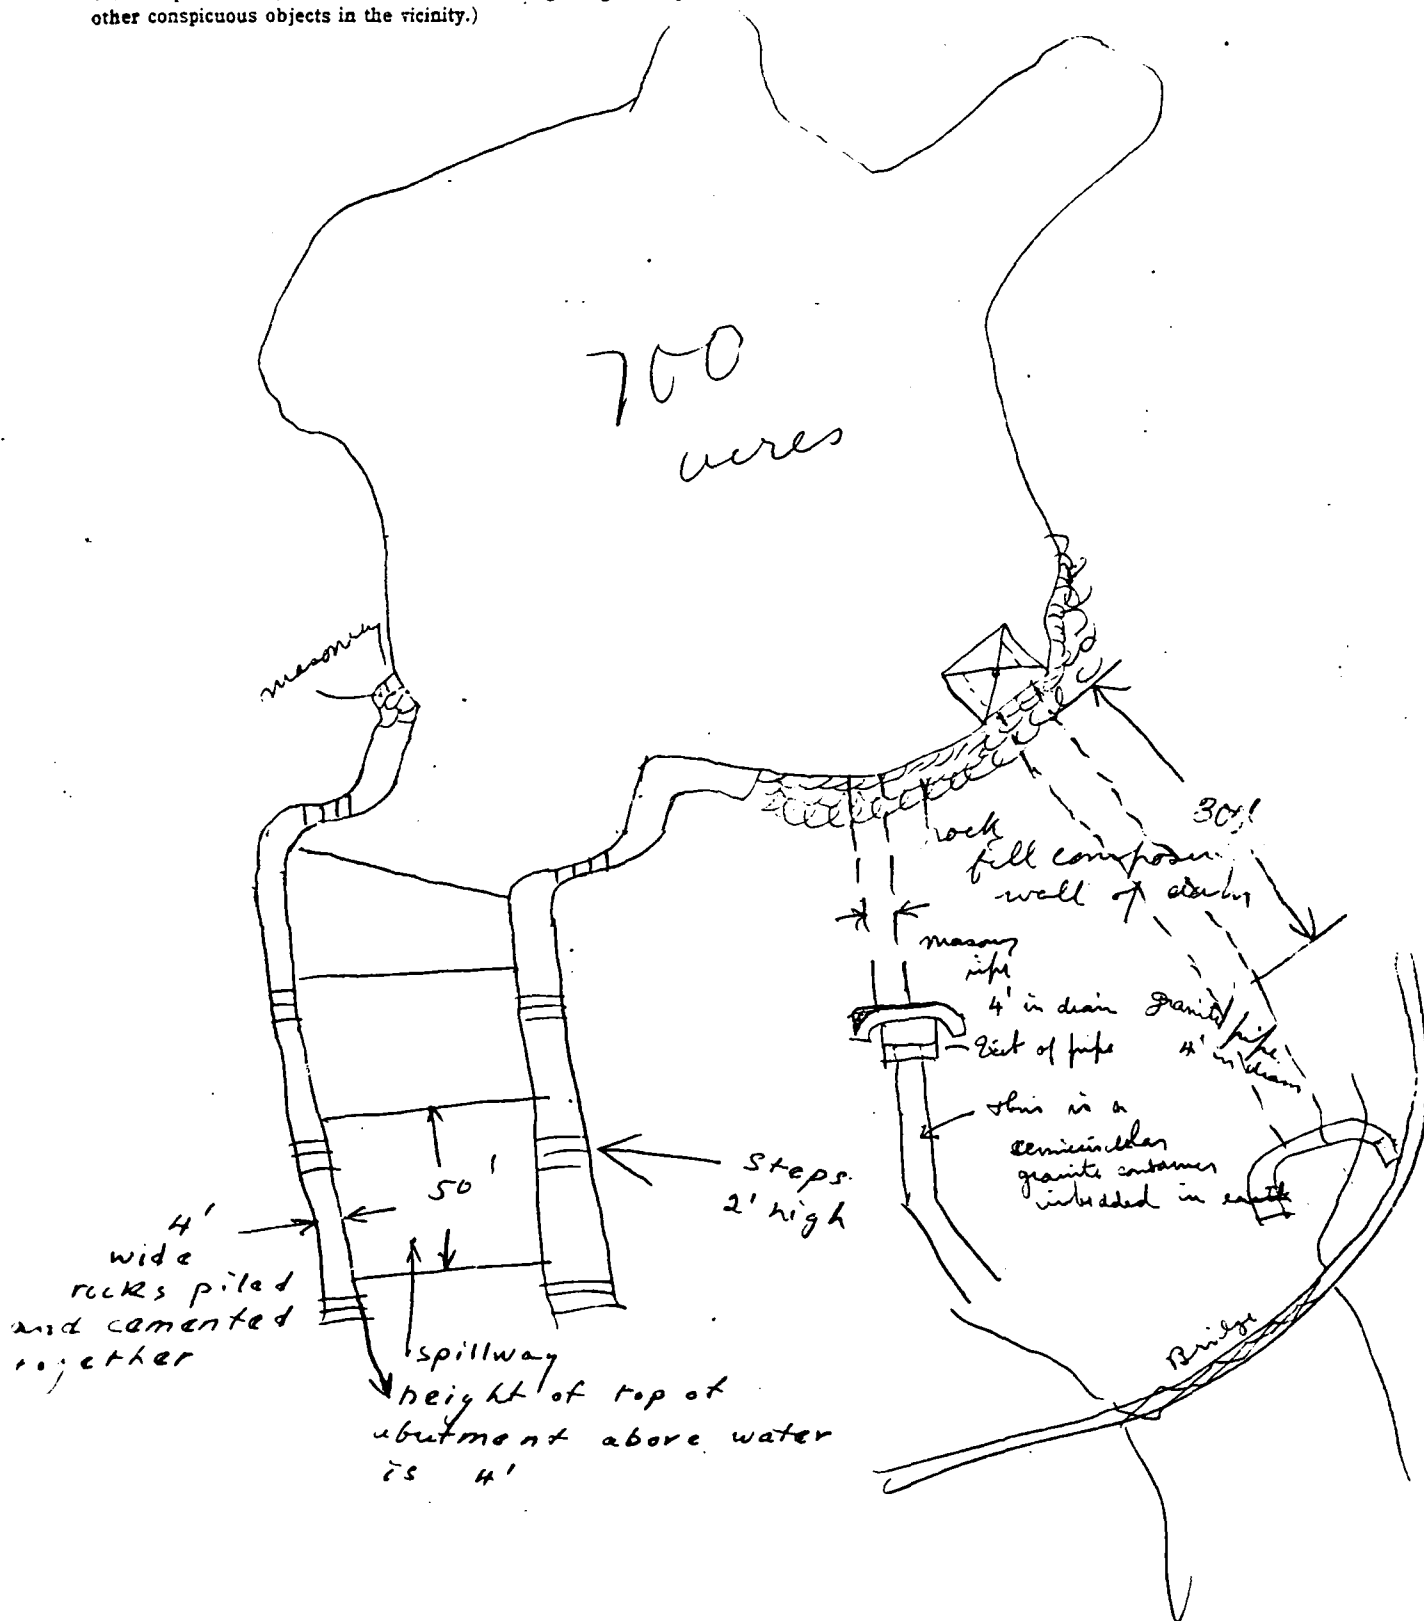 other conspicuous objects in the vicinity.)
700
acres
masonry
rock
fill composes
wall of dam
30'
masonry
pipe
4' in diam
Exit of pipe
granite pipe
4' in diam
this is a
semicircular
granite container
imbedded in earth
50'
Steps
2' high
4'
wide
rocks piled
and cemented
together
spillway
height of top of
abutment above water
is 4'
Bridge